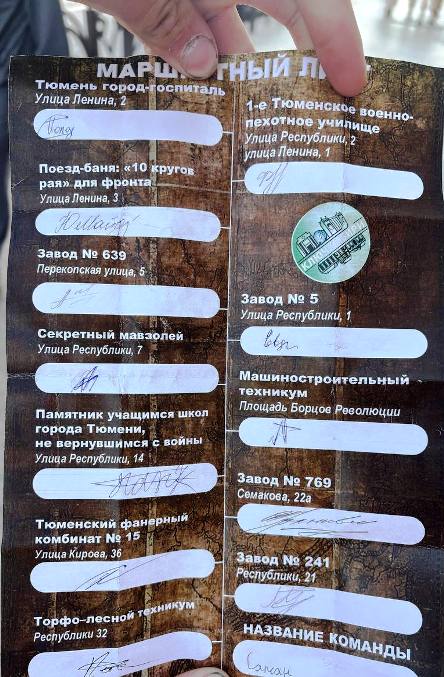 МАРШРУТНЫЙ ЛИСТ
Тюмень город-госпиталь
Улица Ленина, 2
Поезд-баня: «10 кругов
рая» для фронта
Улица Ленина, 3
Завод № 639
Перекопская улица, 5
Секретный мавзолей
Улица Республики, 7
Памятник учащимся школ
города Тюмени,
не вернувшимся с войны
Улица Республики, 14
Тюменский фанерный
комбинат № 15
Улица Кирова, 36
Торфо-лесной техникум
Республики 32
1-е Тюменское военно-
пехотное училище
Улица Республики, 2
улица Ленина, 1
Завод № 5
Улица Республики, 1
Машиностроительный
техникум
Площадь Борцов Революции
Завод № 769
Семакова, 22а
Завод № 241
Республики, 21
НАЗВАНИЕ КОМАНДЫ